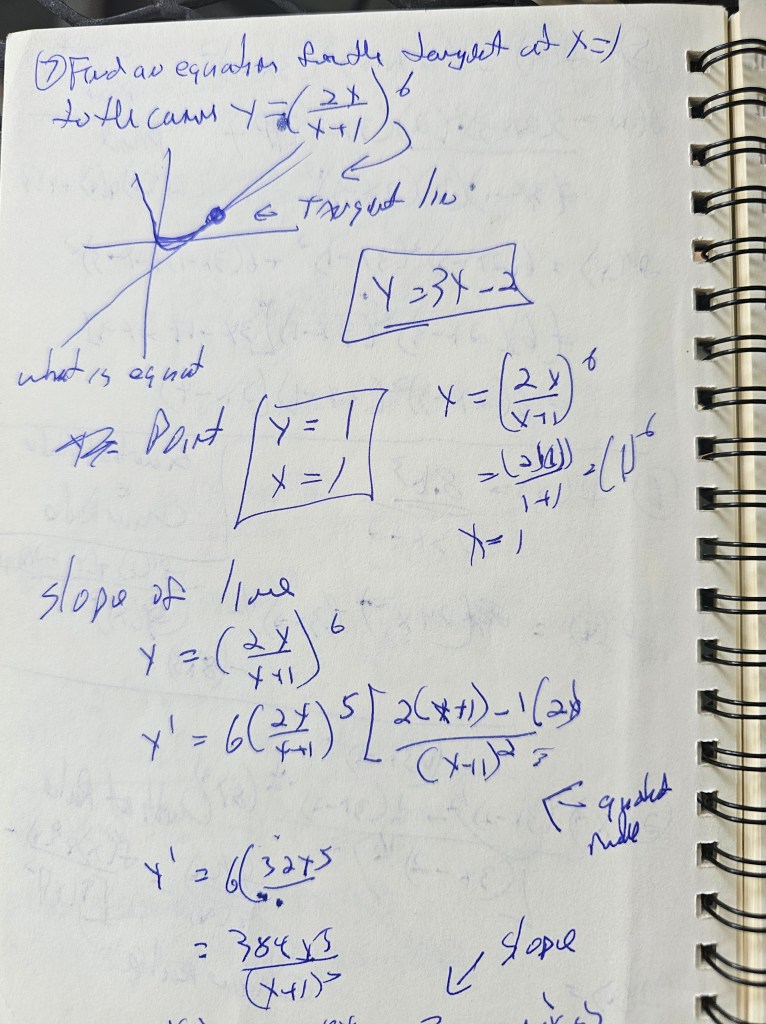 ⑦ Find an equation for the tangent at x=1
to the curve y=(2x/x+1)^6
← Tangent line
y=3x-2
what is equat
Point y=1 x=1
y=(2x/x+1)^6
=(2(1))/1+1=(1)^6
y=1
slope of line
y=(2x/x+1)^6
y'=6(2x/x+1)^5[2(x+1)-1(2x)/(x+1)^2
← quotient rule
y'=6(32x5
=384x5/(x+1)
slope